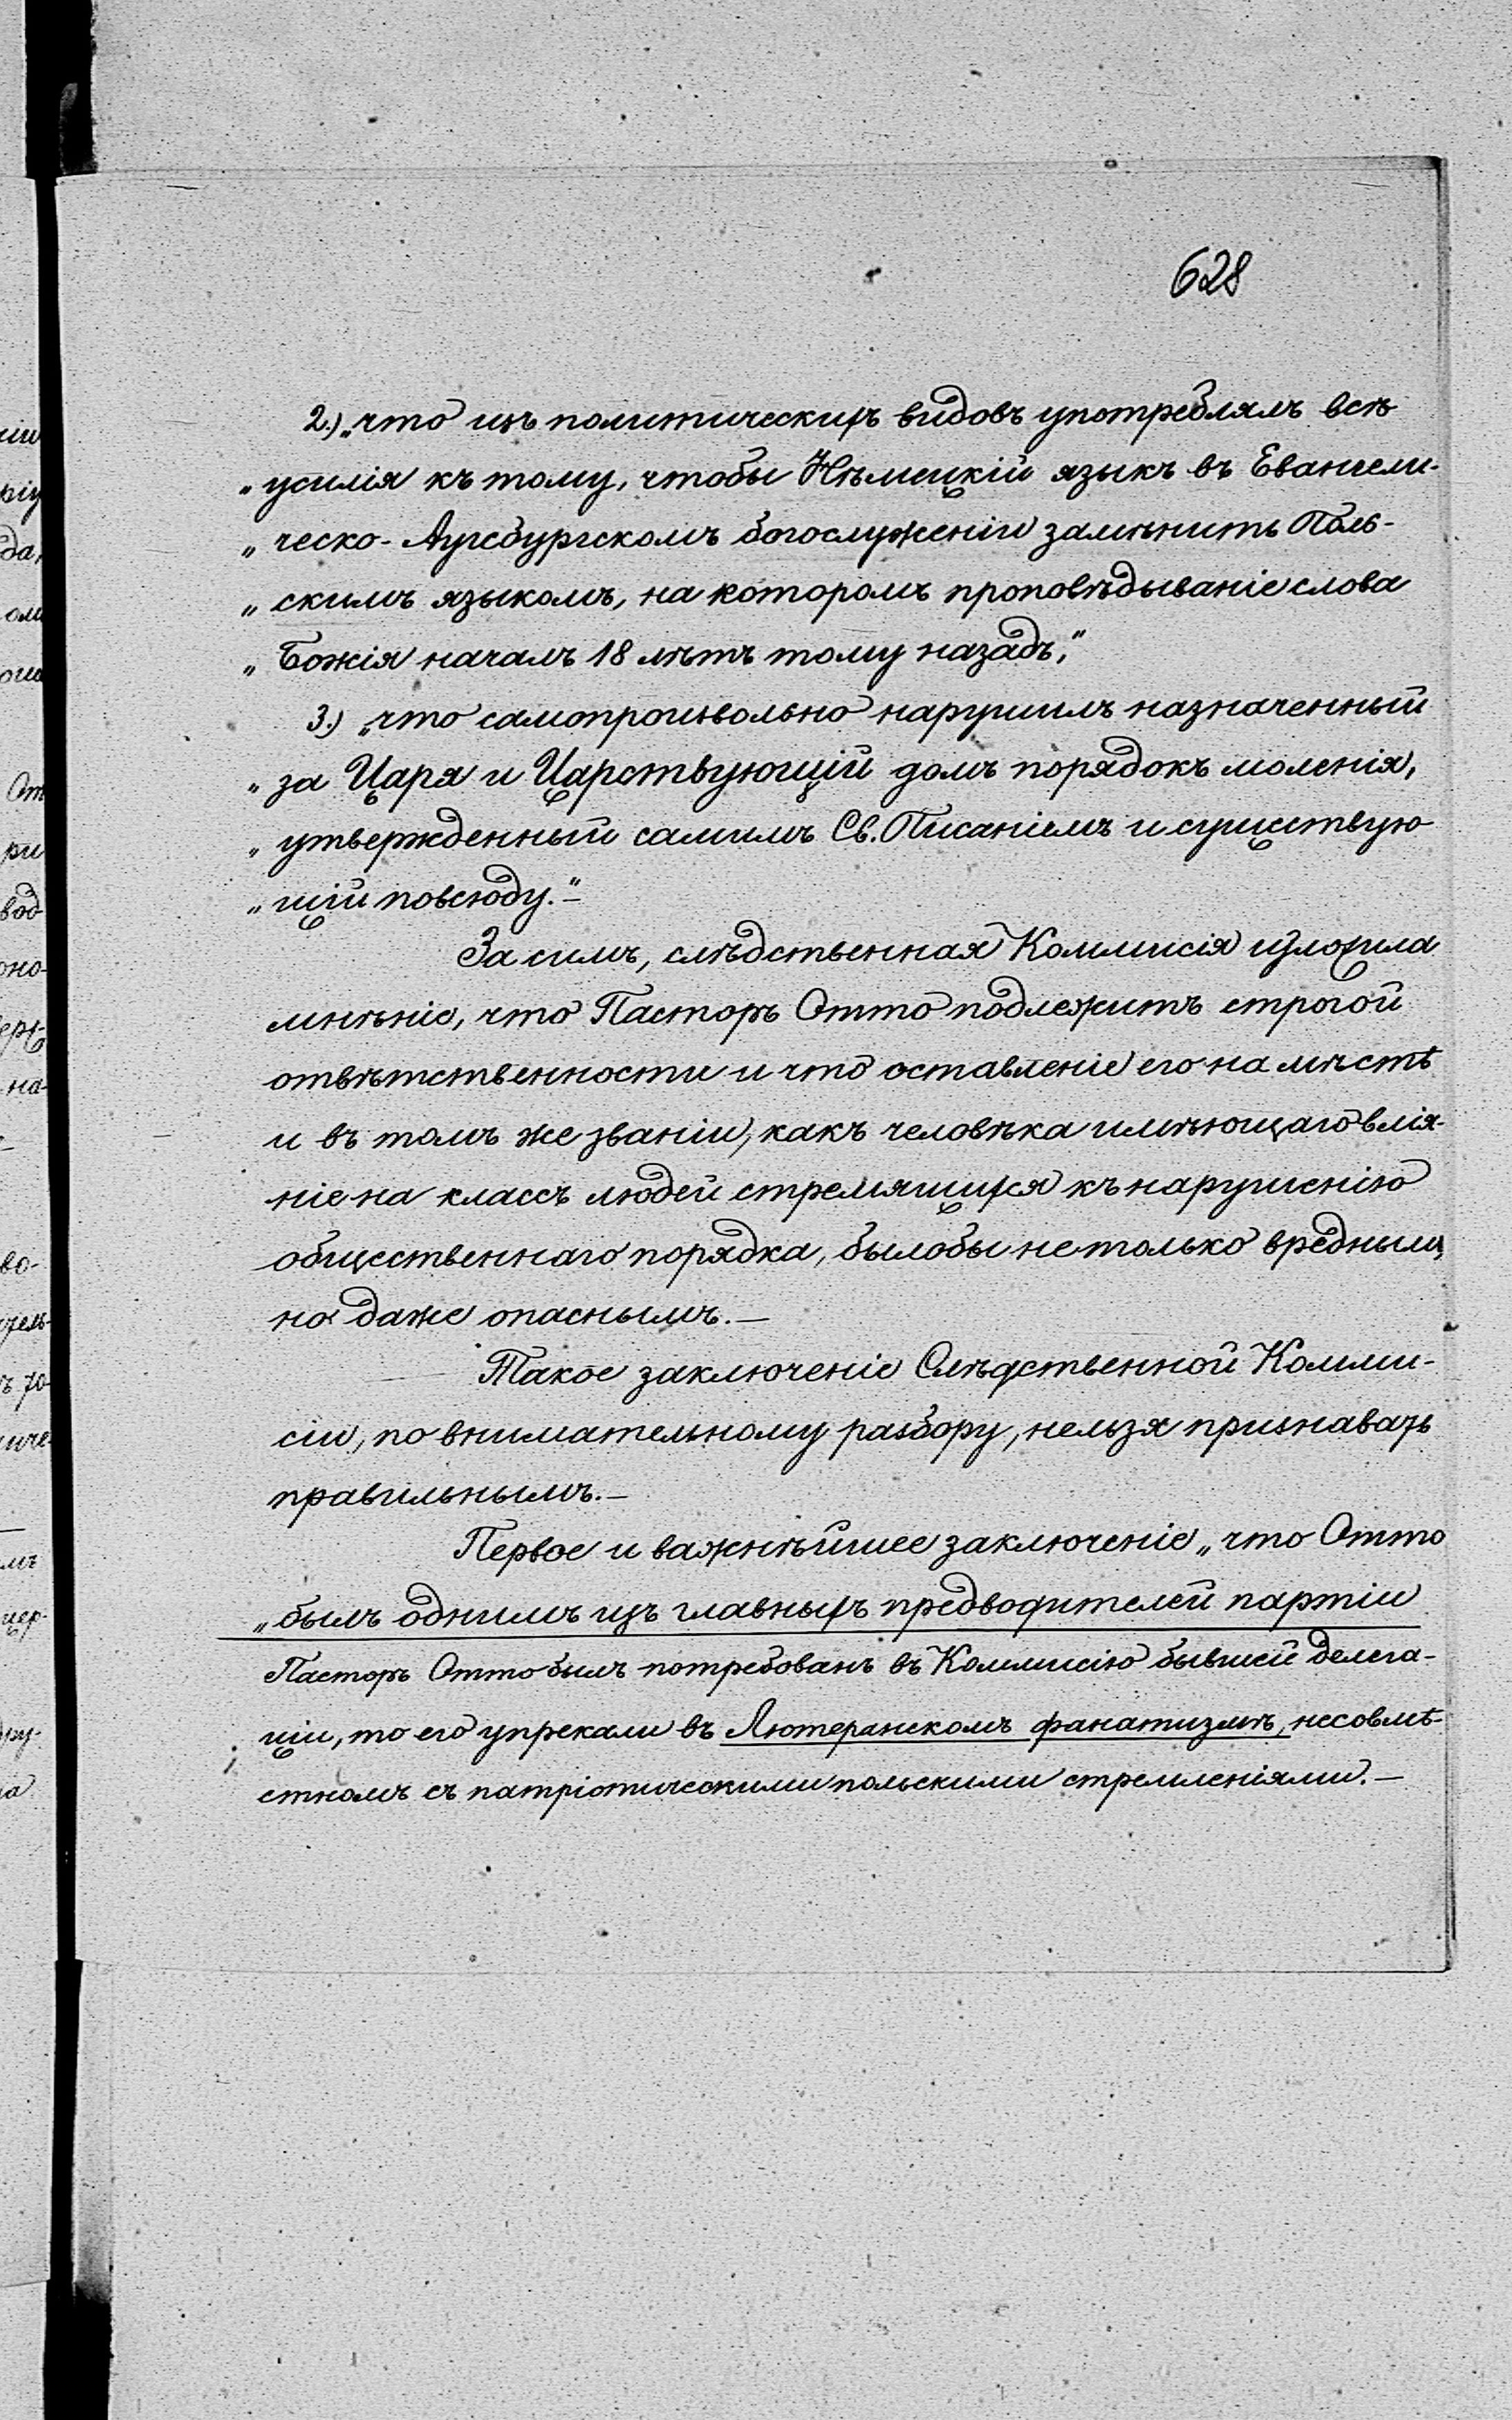 628
2.) „что изъ политическихъ видовъ употреблялъ всѣ
„усилія къ тому, чтобы Нѣмецкій языкъ въ Евангели-
„ческо-Аугсбургскомъ богослуженіи замѣнить Поль-
„скимъ языкомъ, на которомъ проповѣдываніе слова
„Божія началъ 18 лѣтъ тому назадъ;“
3.) „что самопроизвольно нарушилъ назначенный
„за Царя и Царствующій домъ порядокъ моленія,
„утвержденный самимъ Св. Писаніемъ и существую-
„щій повсюду.“–
За симъ, слѣдственная Коммисія изложила
мнѣніе, что Пасторъ Отто подлежитъ строгой
отвѣтственности и что оставленіе его на мѣстѣ
и въ томъ же званіи, какъ человѣка имѣющаго влія-
ніе на классъ людей стремящихся къ нарушенію
общественнаго порядка, было бы не только вреднымъ,
но даже опаснымъ.–
Такое заключеніе Слѣдственной Комми-
сіи, по внимательному разбору, нельзя признавать
правильнымъ.–
Первое и важнѣйшее заключеніе „что Отто
„былъ однимъ изъ главныхъ предводителей партіи
Пасторъ Отто былъ потребованъ въ Коммисію бывшей делега-
ціи, то его упрекали въ Лютеранскомъ фанатизмѣ, несовмѣ-
стномъ съ патріотическими польскими стремленіями.–